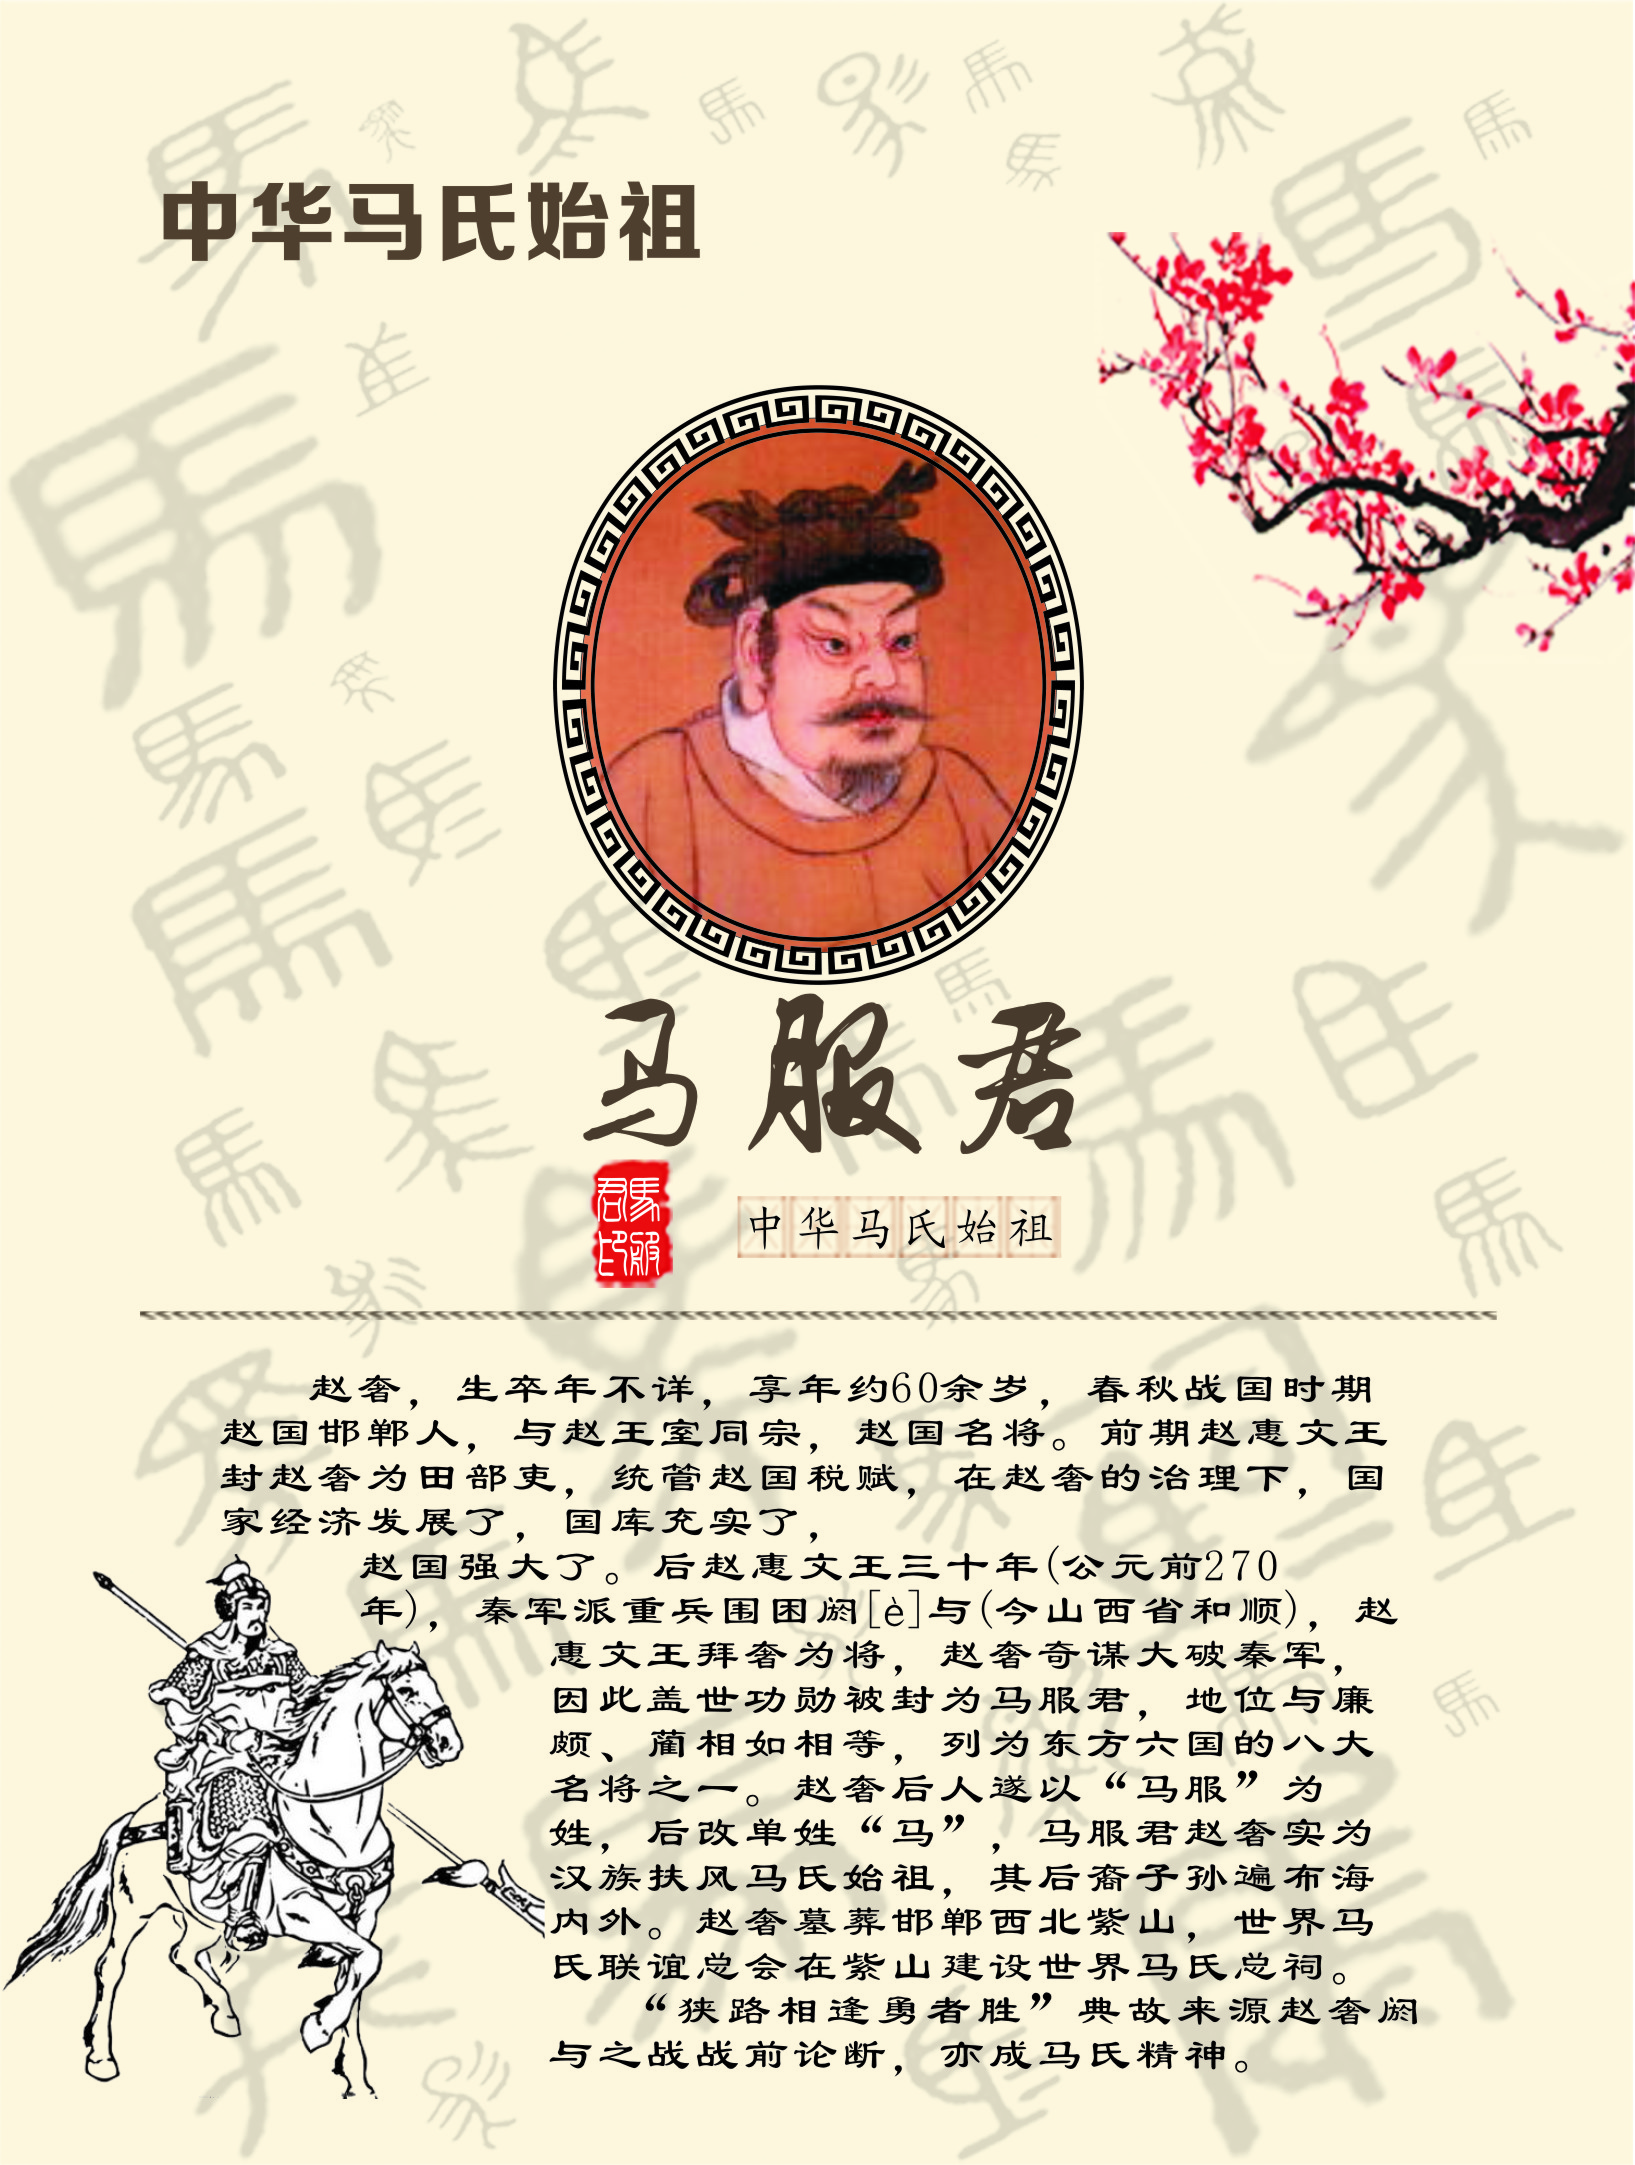 中华马氏始祖
马服君
馬服君印
中华马氏始祖
赵奢，生卒年不详，享年约60余岁，春秋战国时期
赵国邯郸人，与赵王室同宗，赵国名将。前期赵惠文王
封赵奢为田部吏，统管赵国税赋，在赵奢的治理下，国
家经济发展了，国库充实了，
赵国强大了。后赵惠文王三十年(公元前270
年)，秦军派重兵围困阏[è]与(今山西省和顺)，赵
惠文王拜奢为将，赵奢奇谋大破秦军，
因此盖世功勋被封为马服君，地位与廉
颇、蔺相如相等，列为东方六国的八大
名将之一。赵奢后人遂以“马服”为
姓，后改单姓“马”，马服君赵奢实为
汉族扶风马氏始祖，其后裔子孙遍布海
内外。赵奢墓葬邯郸西北紫山，世界马
氏联谊总会在紫山建设世界马氏总祠。
“狭路相逢勇者胜”典故来源赵奢阏
与之战战前论断，亦成马氏精神。